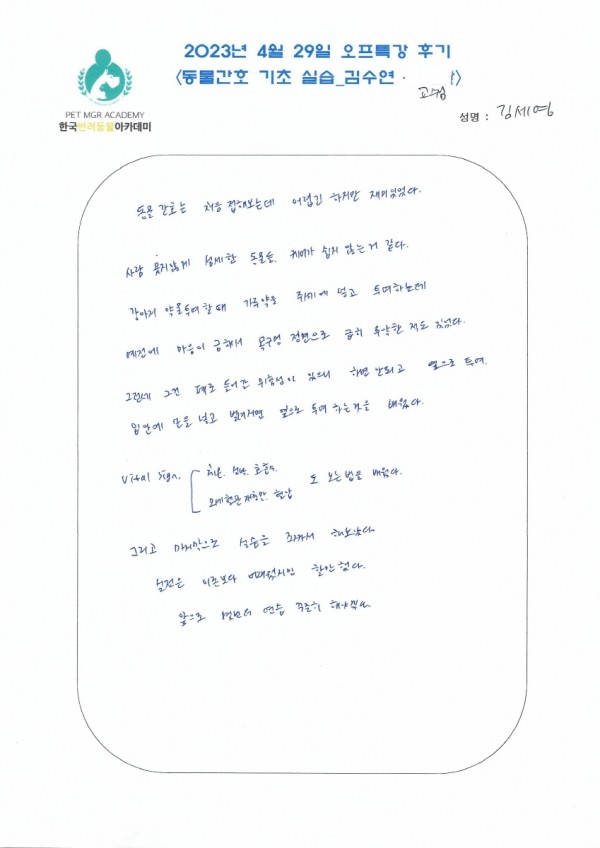 2023년 4월 29일 오프특강 후기
<동물간호 기초 실습_김수연 · 교수님>
PET MGR ACADEMY
한국반려동물아카데미
성명 : 김세영
동물 간호는 처음 접해보는데 어렵긴 하지만 재미있었다.
사람 못지않게 섬세한 동물들, 케어가 쉽지 않는거 같다.
강아지 약물투여할때 가루약을 주사기에 넣고 투여하는데
예전에 마음이 급해서 목구멍 정면으로 급히 투약한 적도 있었다.
그런데 그건 폐로 들어간 위험성이 있으니 하면 안되고 옆으로 투여.
입안에 손을 넣고 벌려지면 옆으로 투여 하는것을 배웠다.
Vital sign. 체온, 심박, 호흡수,
모세혈관 재충만, 혈압 도 보는법을 배웠다.
그리고 마지막으로 실습을 해보았다.
실전은 이론보다 어려웠지만 할만 했다.
앞으로 몇번더 연습 꾸준히 해야겠다.